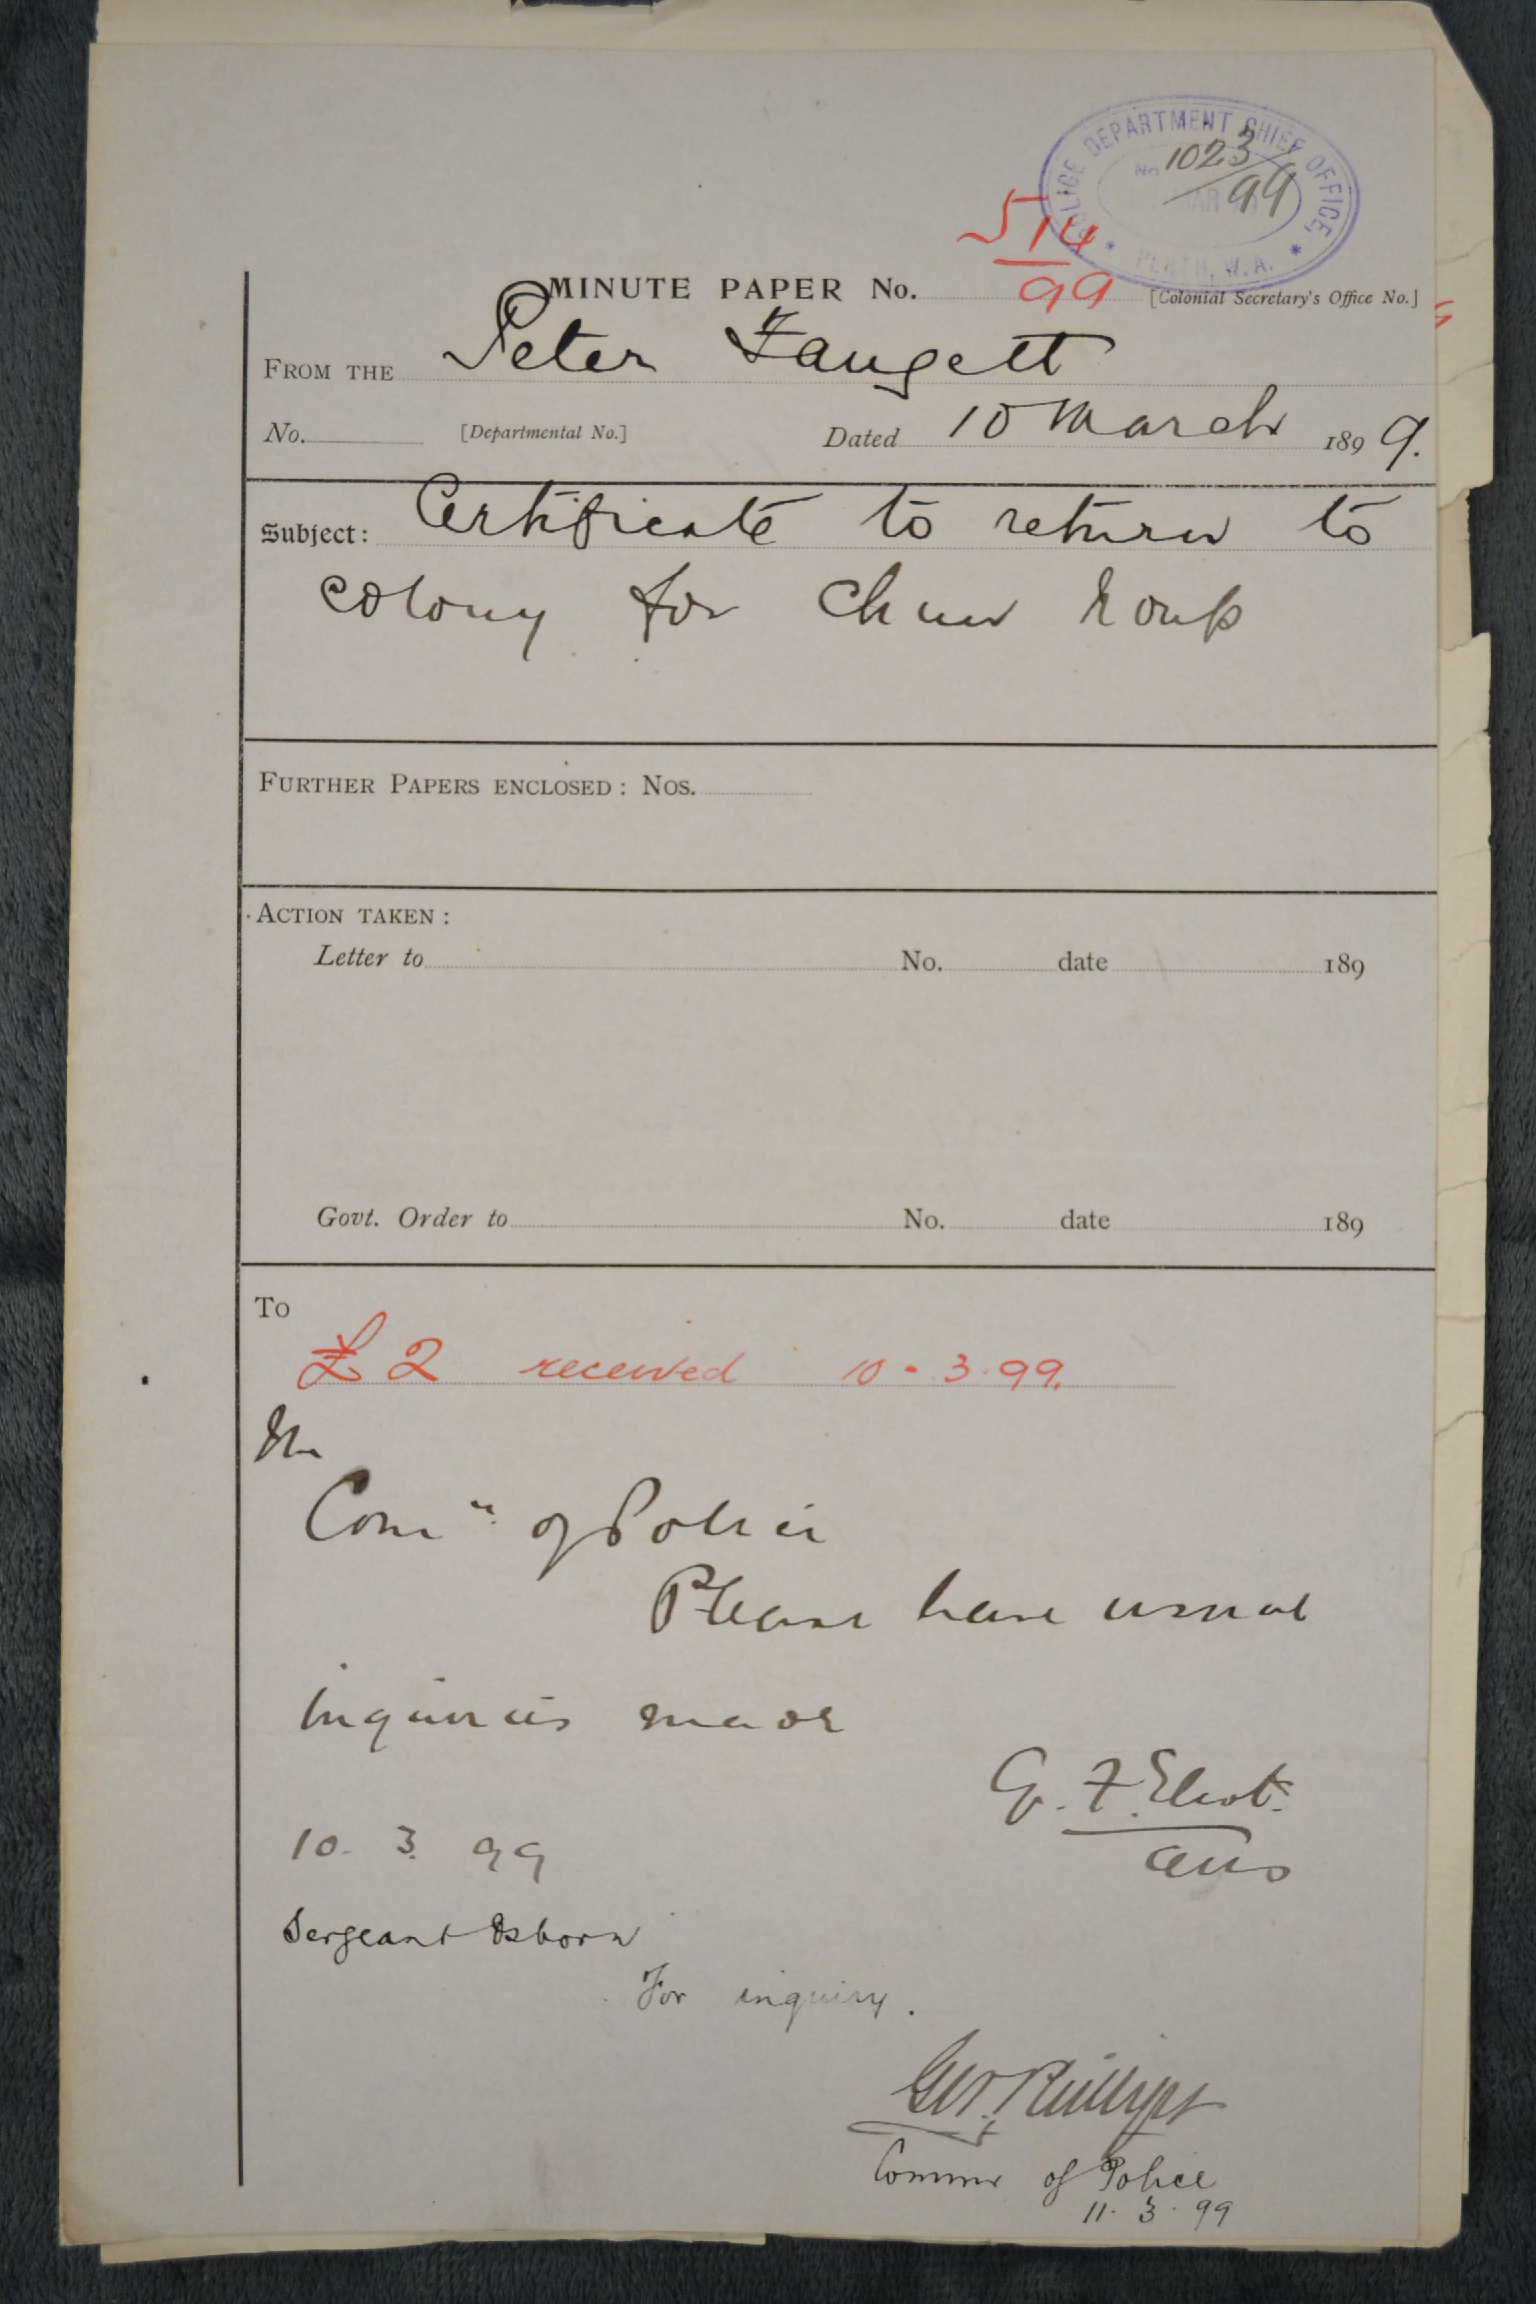 POLICE DEPARTMENT CHIEF OFFICE,
No. 1023/99
MAR
* PERTH, W.A. *
514/99
MINUTE PAPER No. [Colonial Secretary's Office No.]
FROM THE Peter Faugett
No. [Departmental No.] Dated 10 March 1899.
Subject: Certificate to return to
colony for Chun
FURTHER PAPERS ENCLOSED: Nos.
ACTION TAKEN:
Letter to No. date 189
Govt. Order to No. date 189
To
£2 received 10-3.99.
The
Comr. of Police
Please have usual
inquiries made
G. F. Eliot.
10. 3. 99
Sergeant Osborn
For inquiry.
Geo. Phillips
Commr of Police
11. 3. 99